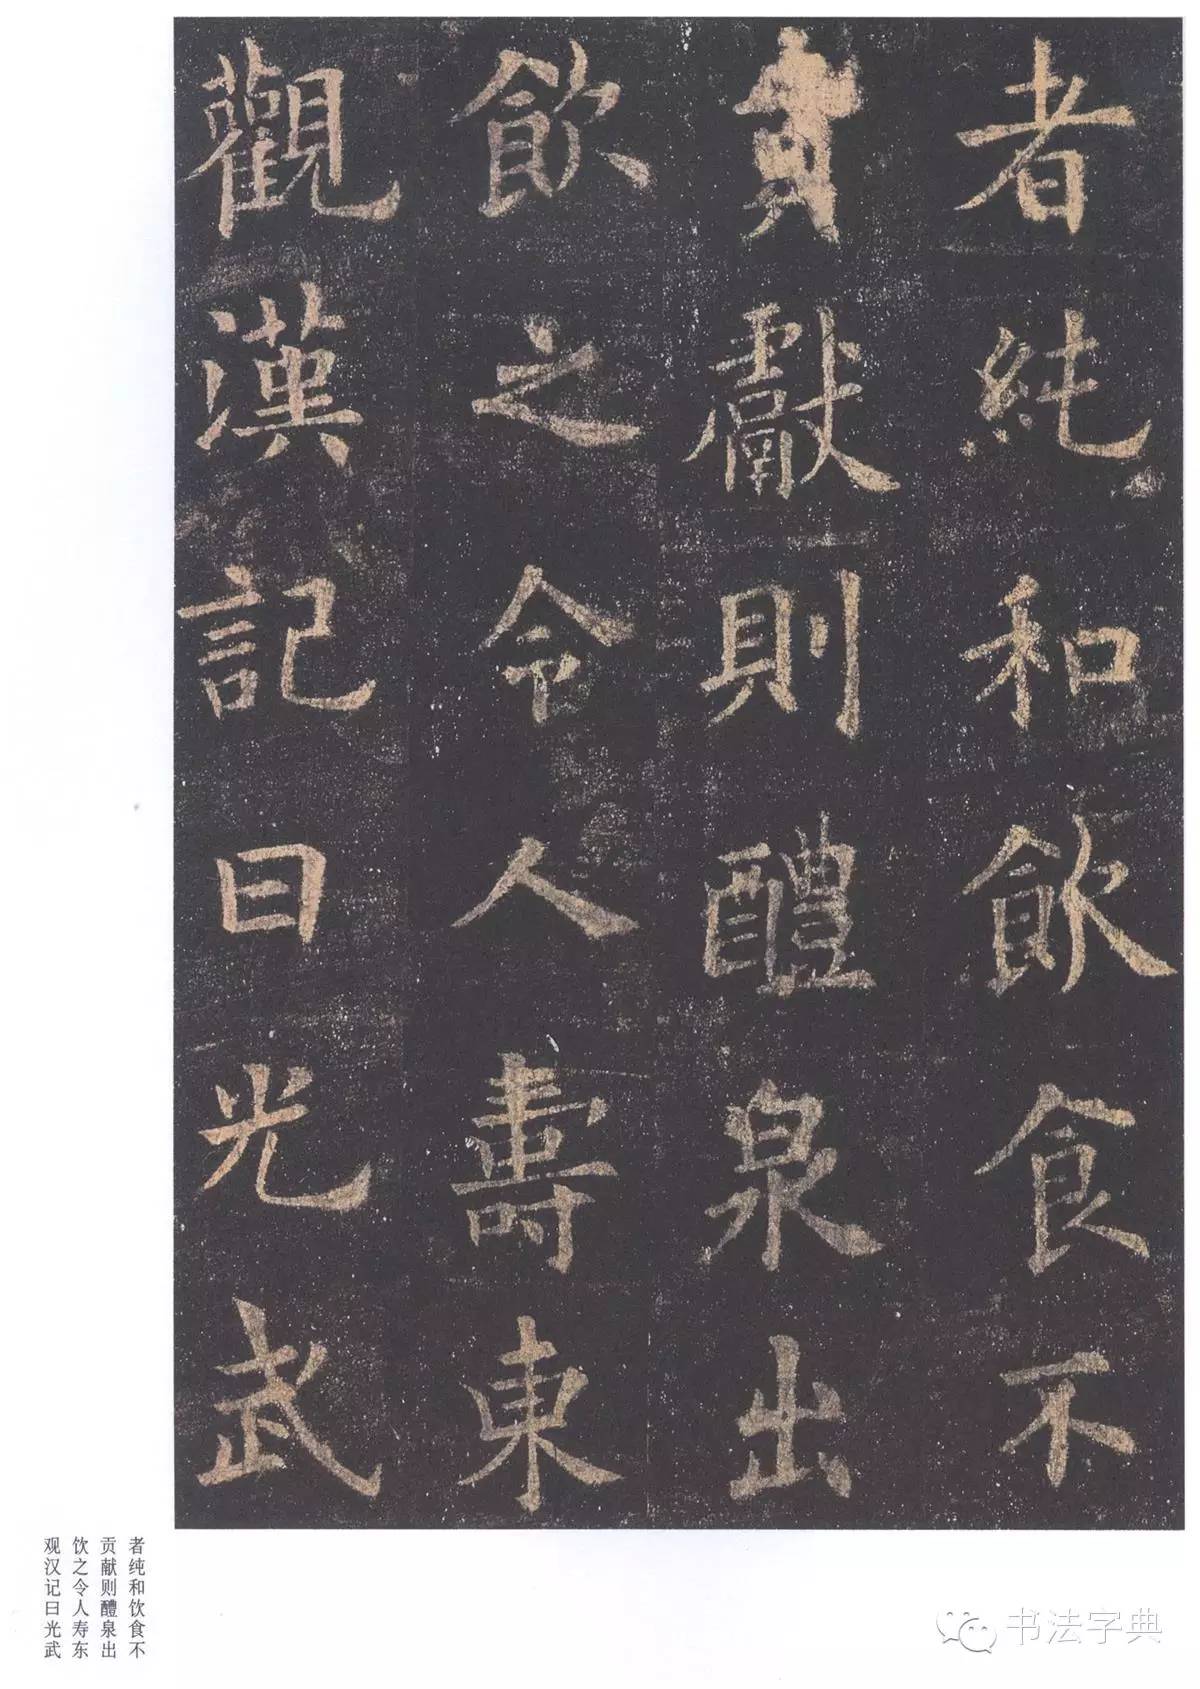 者純和飲食不
貢獻則醴泉出
飲之令人壽東
觀漢記曰光武
者纯和饮食不
贡献则醴泉出
饮之令人寿东
观汉记曰光武
书法字典